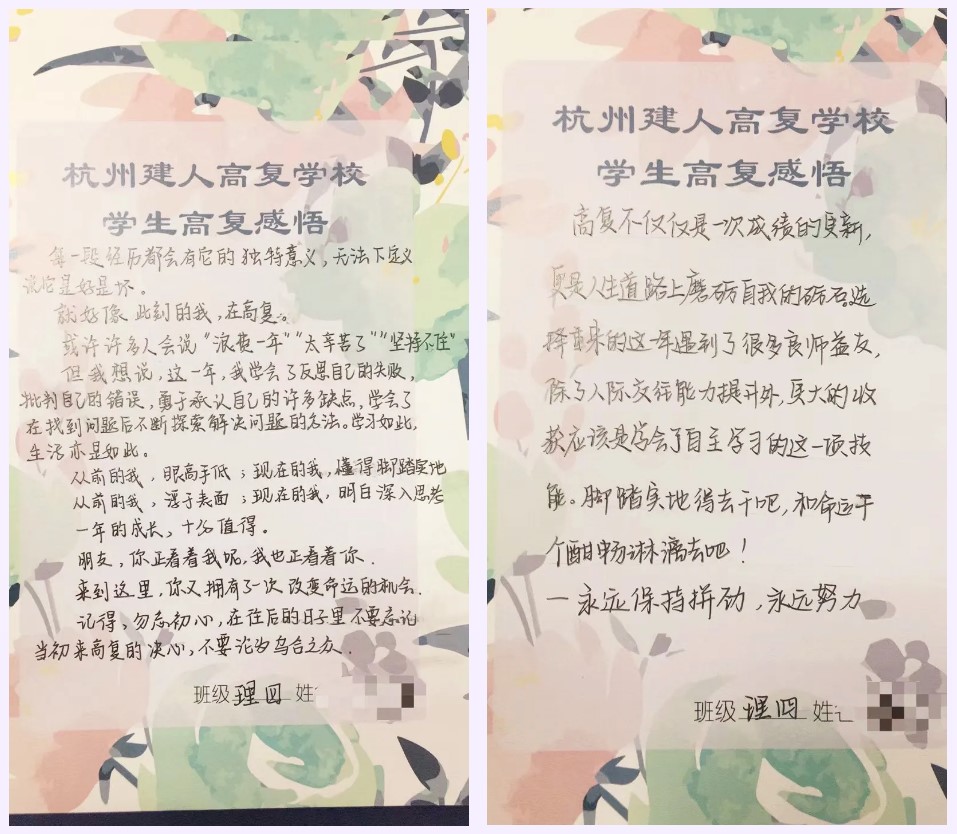 杭州建人高复学校
学生高复感悟
每一段经历都会有它的独特意义，无法下定义
说它是好是坏。
就好像此刻的我，在高复。
或许许多人会说“浪费一年”“太辛苦了”“坚持不住”
但我想说，这一年，我学会了反思自己的失败，
批判自己的错误，勇于承认自己的许多缺点，学会了
在找到问题后不断探索解决问题的方法。学习如此，
生活亦是如此。
从前的我，眼高手低；现在的我，懂得脚踏实地
从前的我，浮于表面；现在的我，明白深入思考
一年的成长，十分值得。
朋友，你正看着我呢，我也正看着你．
来到这里，你又拥有了一次改变命运的机会．
记得，勿忘初心，在往后的日子里不要忘记
当初来高复的决心，不要沦为乌合之众．
班级 理四 姓
杭州建人高复学校
学生高复感悟
高复不仅仅是一次成绩的更新，
更是人生道路上磨砺自我的砺石选
择重来的这一年遇到了很多良师益友，
除了人际交往能力提升外，更大的收
获应该是学会了自主学习的这一项技
能。脚踏实地得去干吧，和命运干
个酣畅淋漓去吧！
一永远保持拼劲，永远努力
班级 理四 姓